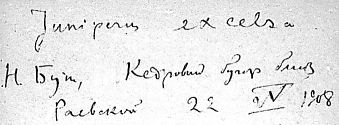 Juniperus excelsa
Н. Буш, Кедровый бугор близ
Раевской 22 IV 1908